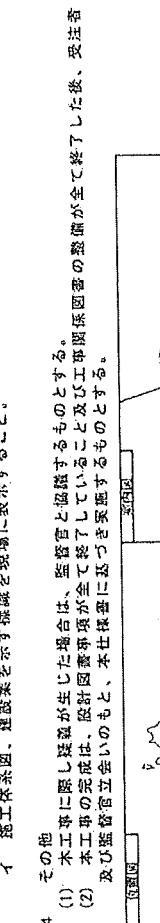 イ 施工体系図、建設業を示す標識を現場に表示すること。
4 その他
(1) 本工事に際し疑義が生じた場合は、監督官と協議するものとする。
(2) 本工事の完成は、設計図書事項が全て終了していること及び工事関係図書の整備が全て終了した後、受注者
及び監督官立会いのもと、本仕様書に基づき実施するものとする。
位置図
案内図